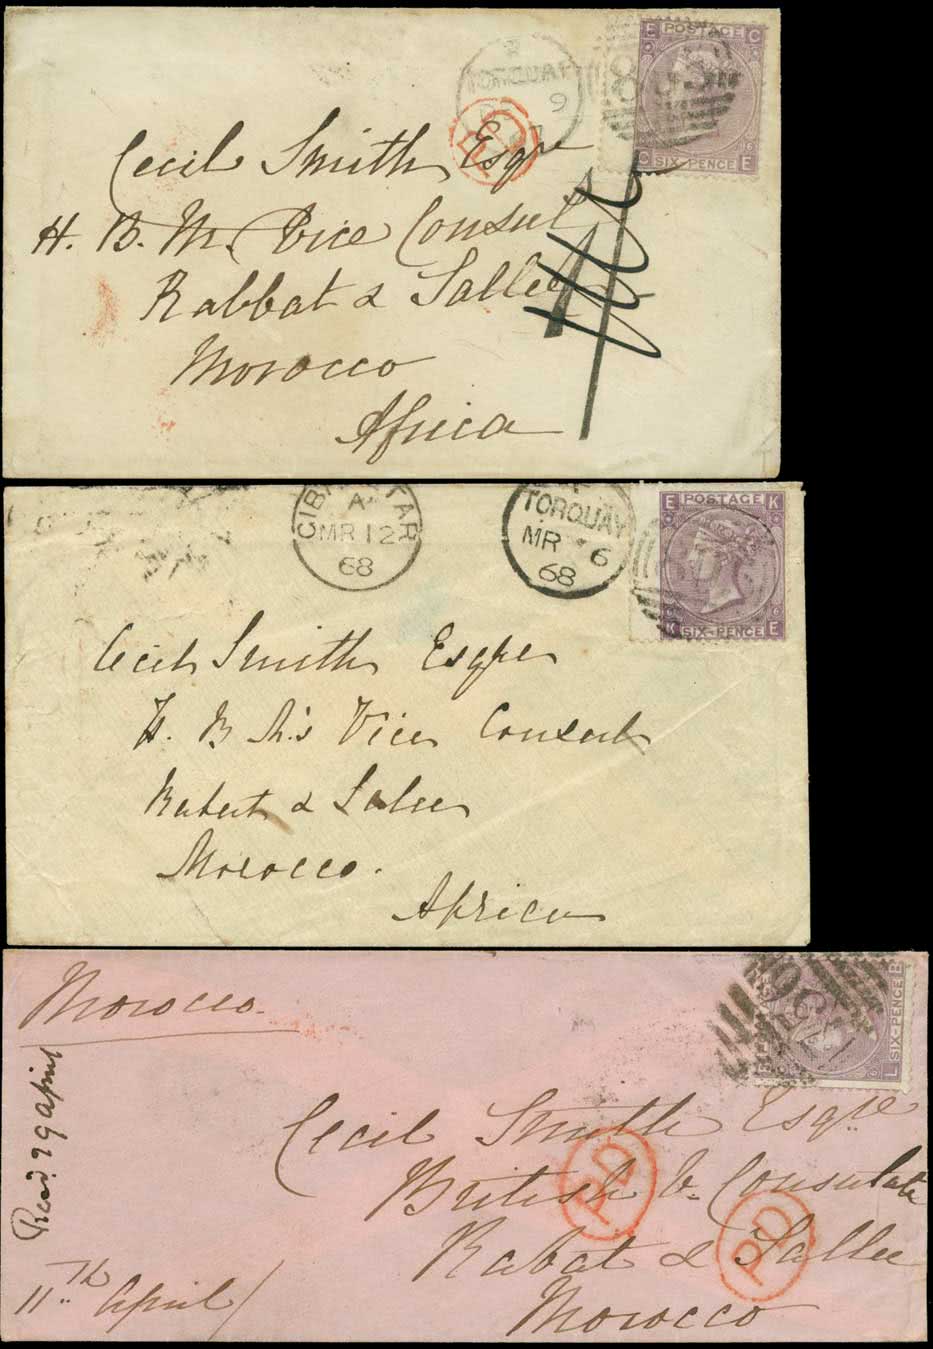 E POSTAGE C
TORQUAY
9
PD
C SIX-PENCE E
Cecil Smith Esqre
H. B. M. Vice Consul
Rabbat & Sallee
Morocco
Africa
GIBRALTAR
A
MR 12
68
TORQUAY
MR 6
68
E POSTAGE K
K SIX-PENCE E
Cecil Smith Esqre
H. B M's Vice Consul
Rabat & Salee
Morocco.
Africa
Morocco.
Recd. 29 April
11th April
SIX-PENCE B
L
Cecil Smith Esqre
British V. Consulate
Rabat & Sallee
Morocco
PD
PD